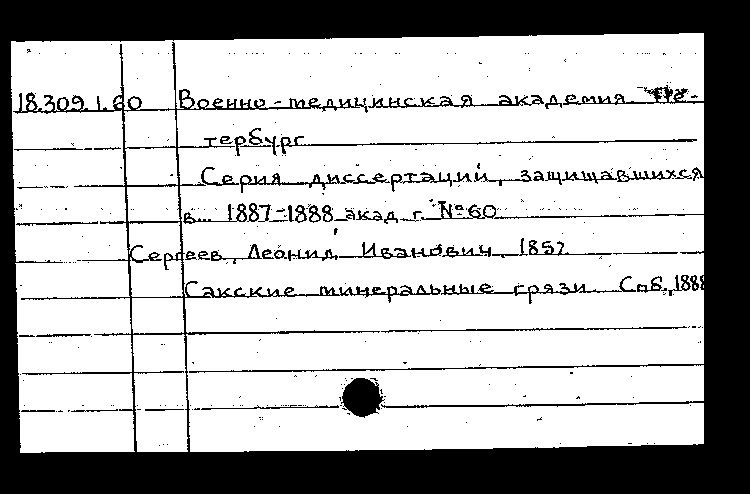 18.309.1.60 Военно-медицинская академия Пе-
тербург
Серия диссертаций, защищавшихся
в... 1887-1888 акад. г. №60
Сергеев, Леонид Иванович, 1857
Сакские минеральные грязи. Спб., 1888